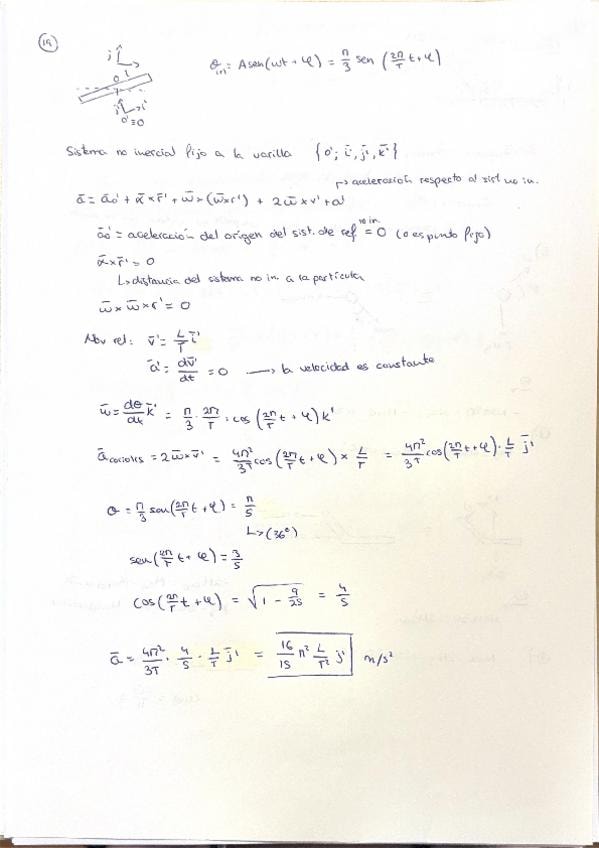 19
j i
θin = A sen(ωt + φ) = π/3 sen (2π/T t + φ)
0
j' i'
0'≡0
Sistema no inercial fijo a la varilla {0'; i', j', k'}
↳ aceleración respecto al sist no in.
ā = āo' + ᾱ × r̄' + ω̄ × (ω̄ × r̄') + 2ω̄ × v̄' + a'
āo' = aceleración del origen del sist. de ref no in. = 0 (0 es punto fijo)
ᾱ × r̄' = 0
↳ distancia del sistema no in. a la partícula
ω̄ × ω̄ × r' = 0
Mov rel: v̄' = L/T i'
ā' = dv̄'/dt = 0 → la velocidad es constante
ω̄ = dθ/dt k' = π/3 · 2π/T · cos (2π/T t + φ) k'
ā coriolis = 2ω̄ × v̄' = 4π²/3T cos (2π/T t + φ) × L/T = 4π²/3T cos (2π/T t + φ) · L/T j'
θ = π/3 sen (2π/T t + φ) = π/5
↳ (36º)
sen (2π/T t + φ) = 3/5
cos (2π/T t + φ) = √(1 - 9/25) = 4/5
ā = 4π²/3T · 4/5 · L/T j' = 16/15 π² L/T² j' m/s²